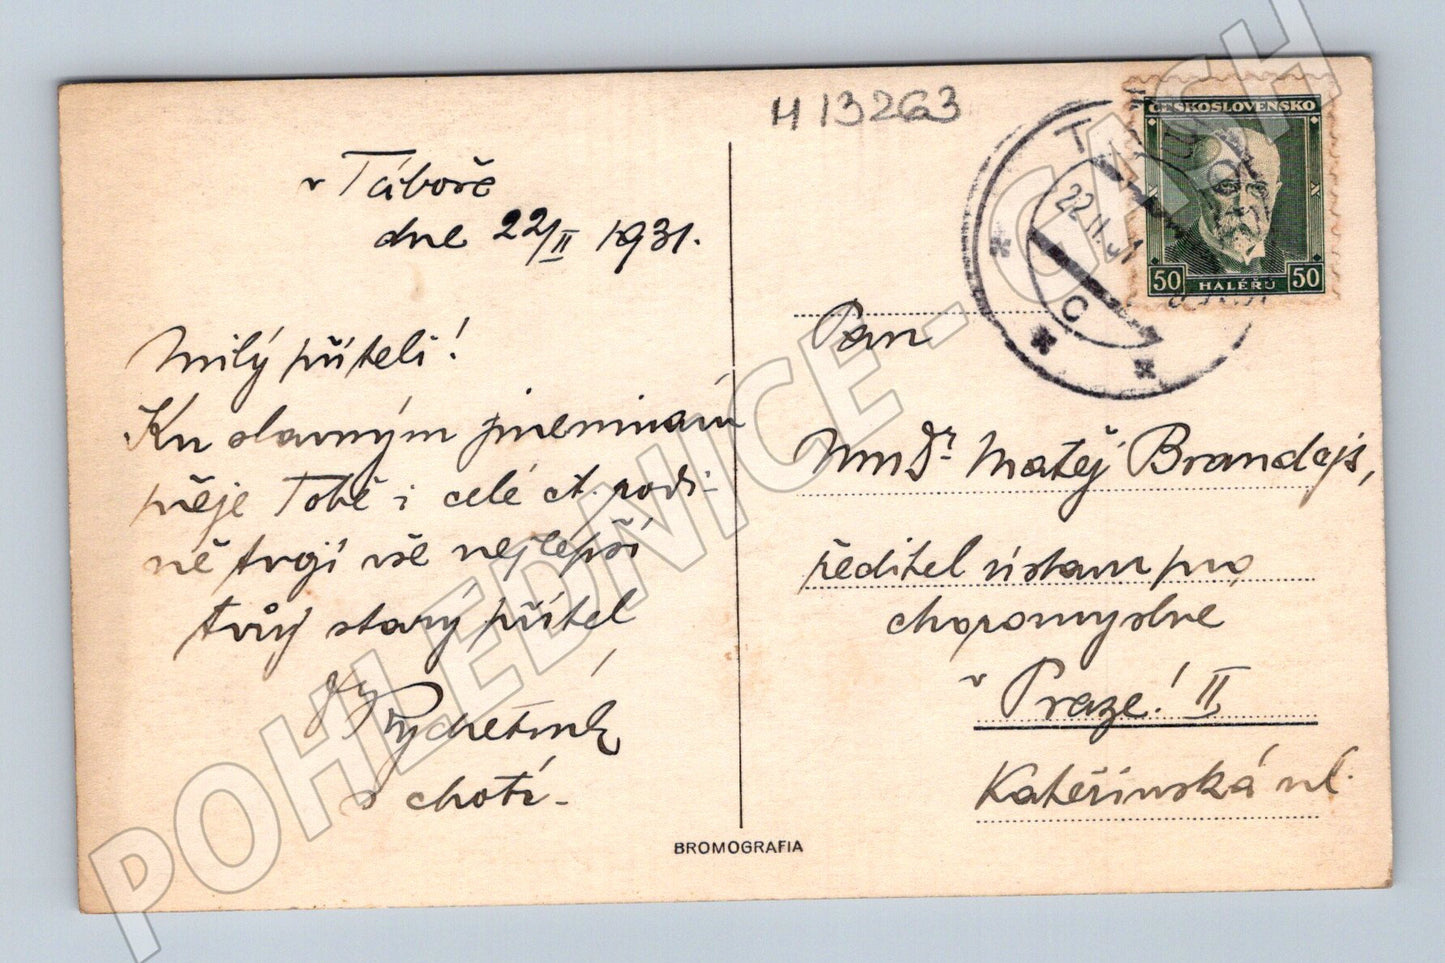 H 13263
v Táboře
dne 22/II 1931.
Milý příteli!
Ku slavným jmeninám
přeje Tobě i celé ct. rodi-
ně tvojí vše nejlepší
tvůj starý přítel
Rychetník
s chotí.
BROMOGRAFIA
ČESKOSLOVENSKO
50 HALÉŘŮ 50
T
22.II.31
C
Pan
MUDr. Matěj Brandejs,
ředitel ústavu pro
choromyslné
v Praze! II
Kateřinská ul.
POHLEDNICE - CASH